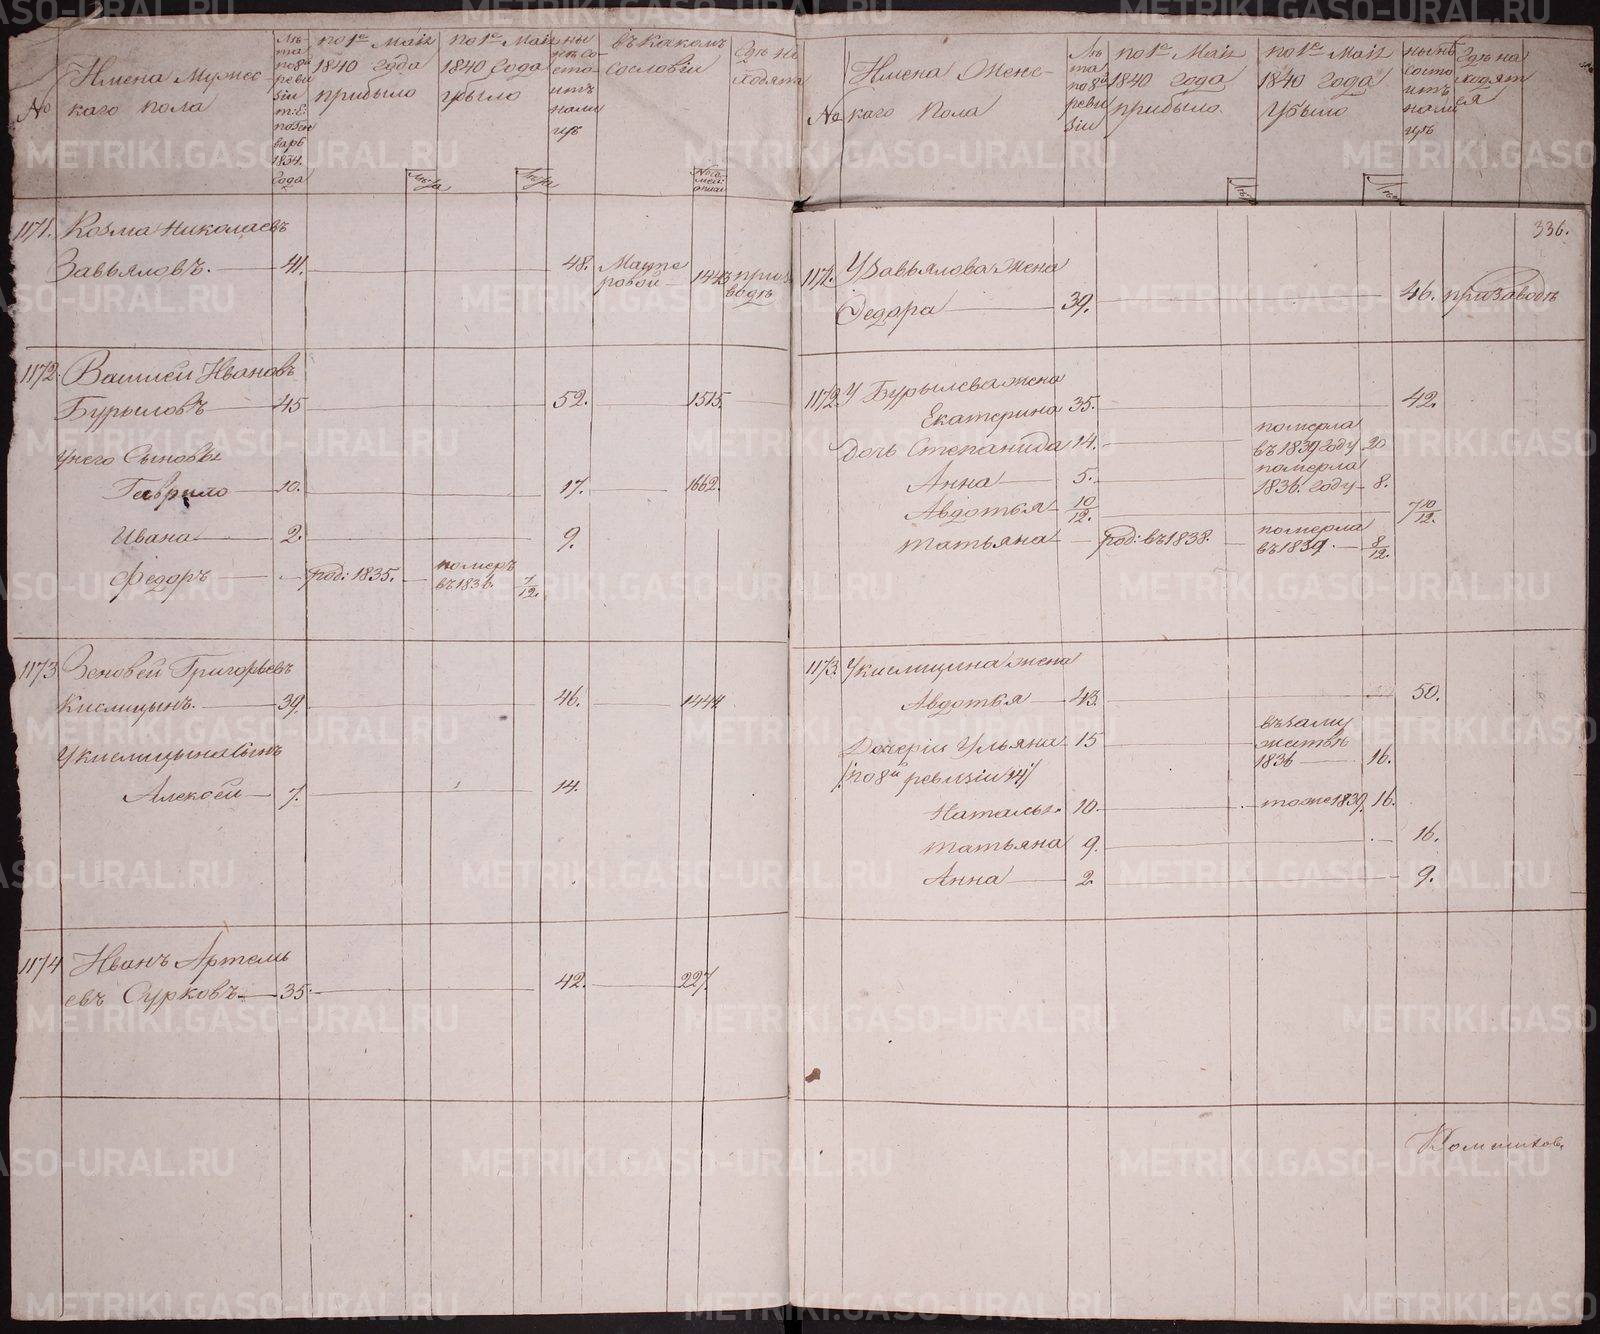 №
Имена Мужес-
каго пола
Лѣ-
та
по 8й
реви
зіи
т.е.
по Ген
варь
1834.
года
по 1е Маія
1840 года
прибыло
Лѣта
по 1е Маія
1840 года
убыло
Лѣта
ны
нѣ со-
сто-
итъ
нали
цѣ
въ какомъ
сословіи
№ се-
мей.
описи
Гдѣ на
ходятъ
1171. Козма Николаевъ
Завьяловъ. 41. 48. Мастe
ровой 1443 при за
водѣ
1172. Василей Ивановъ
Бурыловъ 45 52. 1515.
У него Сыновья
Гаврило 10. 17. 1662.
Ивана 2. 9.
Федоръ род: 1835. померъ
въ 1836. 7/12.
1173 Зеновей Григорьевъ
Кислицынъ. 39. 46. 1444
У Кислицына Сынъ
Алексѣй 7. 14.
1174 Иванъ Артемь
евъ Сурковъ 35. 42. 227.
№
Имена Женс-
каго пола
Лѣ
та
по 8й
реви
зіи
по 1е Маія
1840 года
прибыло.
Лѣта
по 1е Маія
1840 года
убыло
Лѣта
нынѣ
состо
итъ
нали
цѣ
Гдѣ на
ходят
ся
336.
1171. У Завьялова жена
Федора 39. 46. при Заводѣ
1172. У Бурылева жена
Екатерина 35. 42.
Дочь Степанида 14. померла
въ 1839 году 20
Анна 5. померла
1836. году 8.
Авдотья 10/12. 7 10/12.
Татьяна род: въ 1838. померла
въ 1839. 8/12.
1173. У Кислицина жена
Авдотья 43. 50.
Дочери Ульяна 15 въ заму
жствѣ
1836 16.
/по 8й ревизіи 14/
Наталья 10. тоже 1839. 16.
Татьяна 9. 16.
Анна 2. 9.